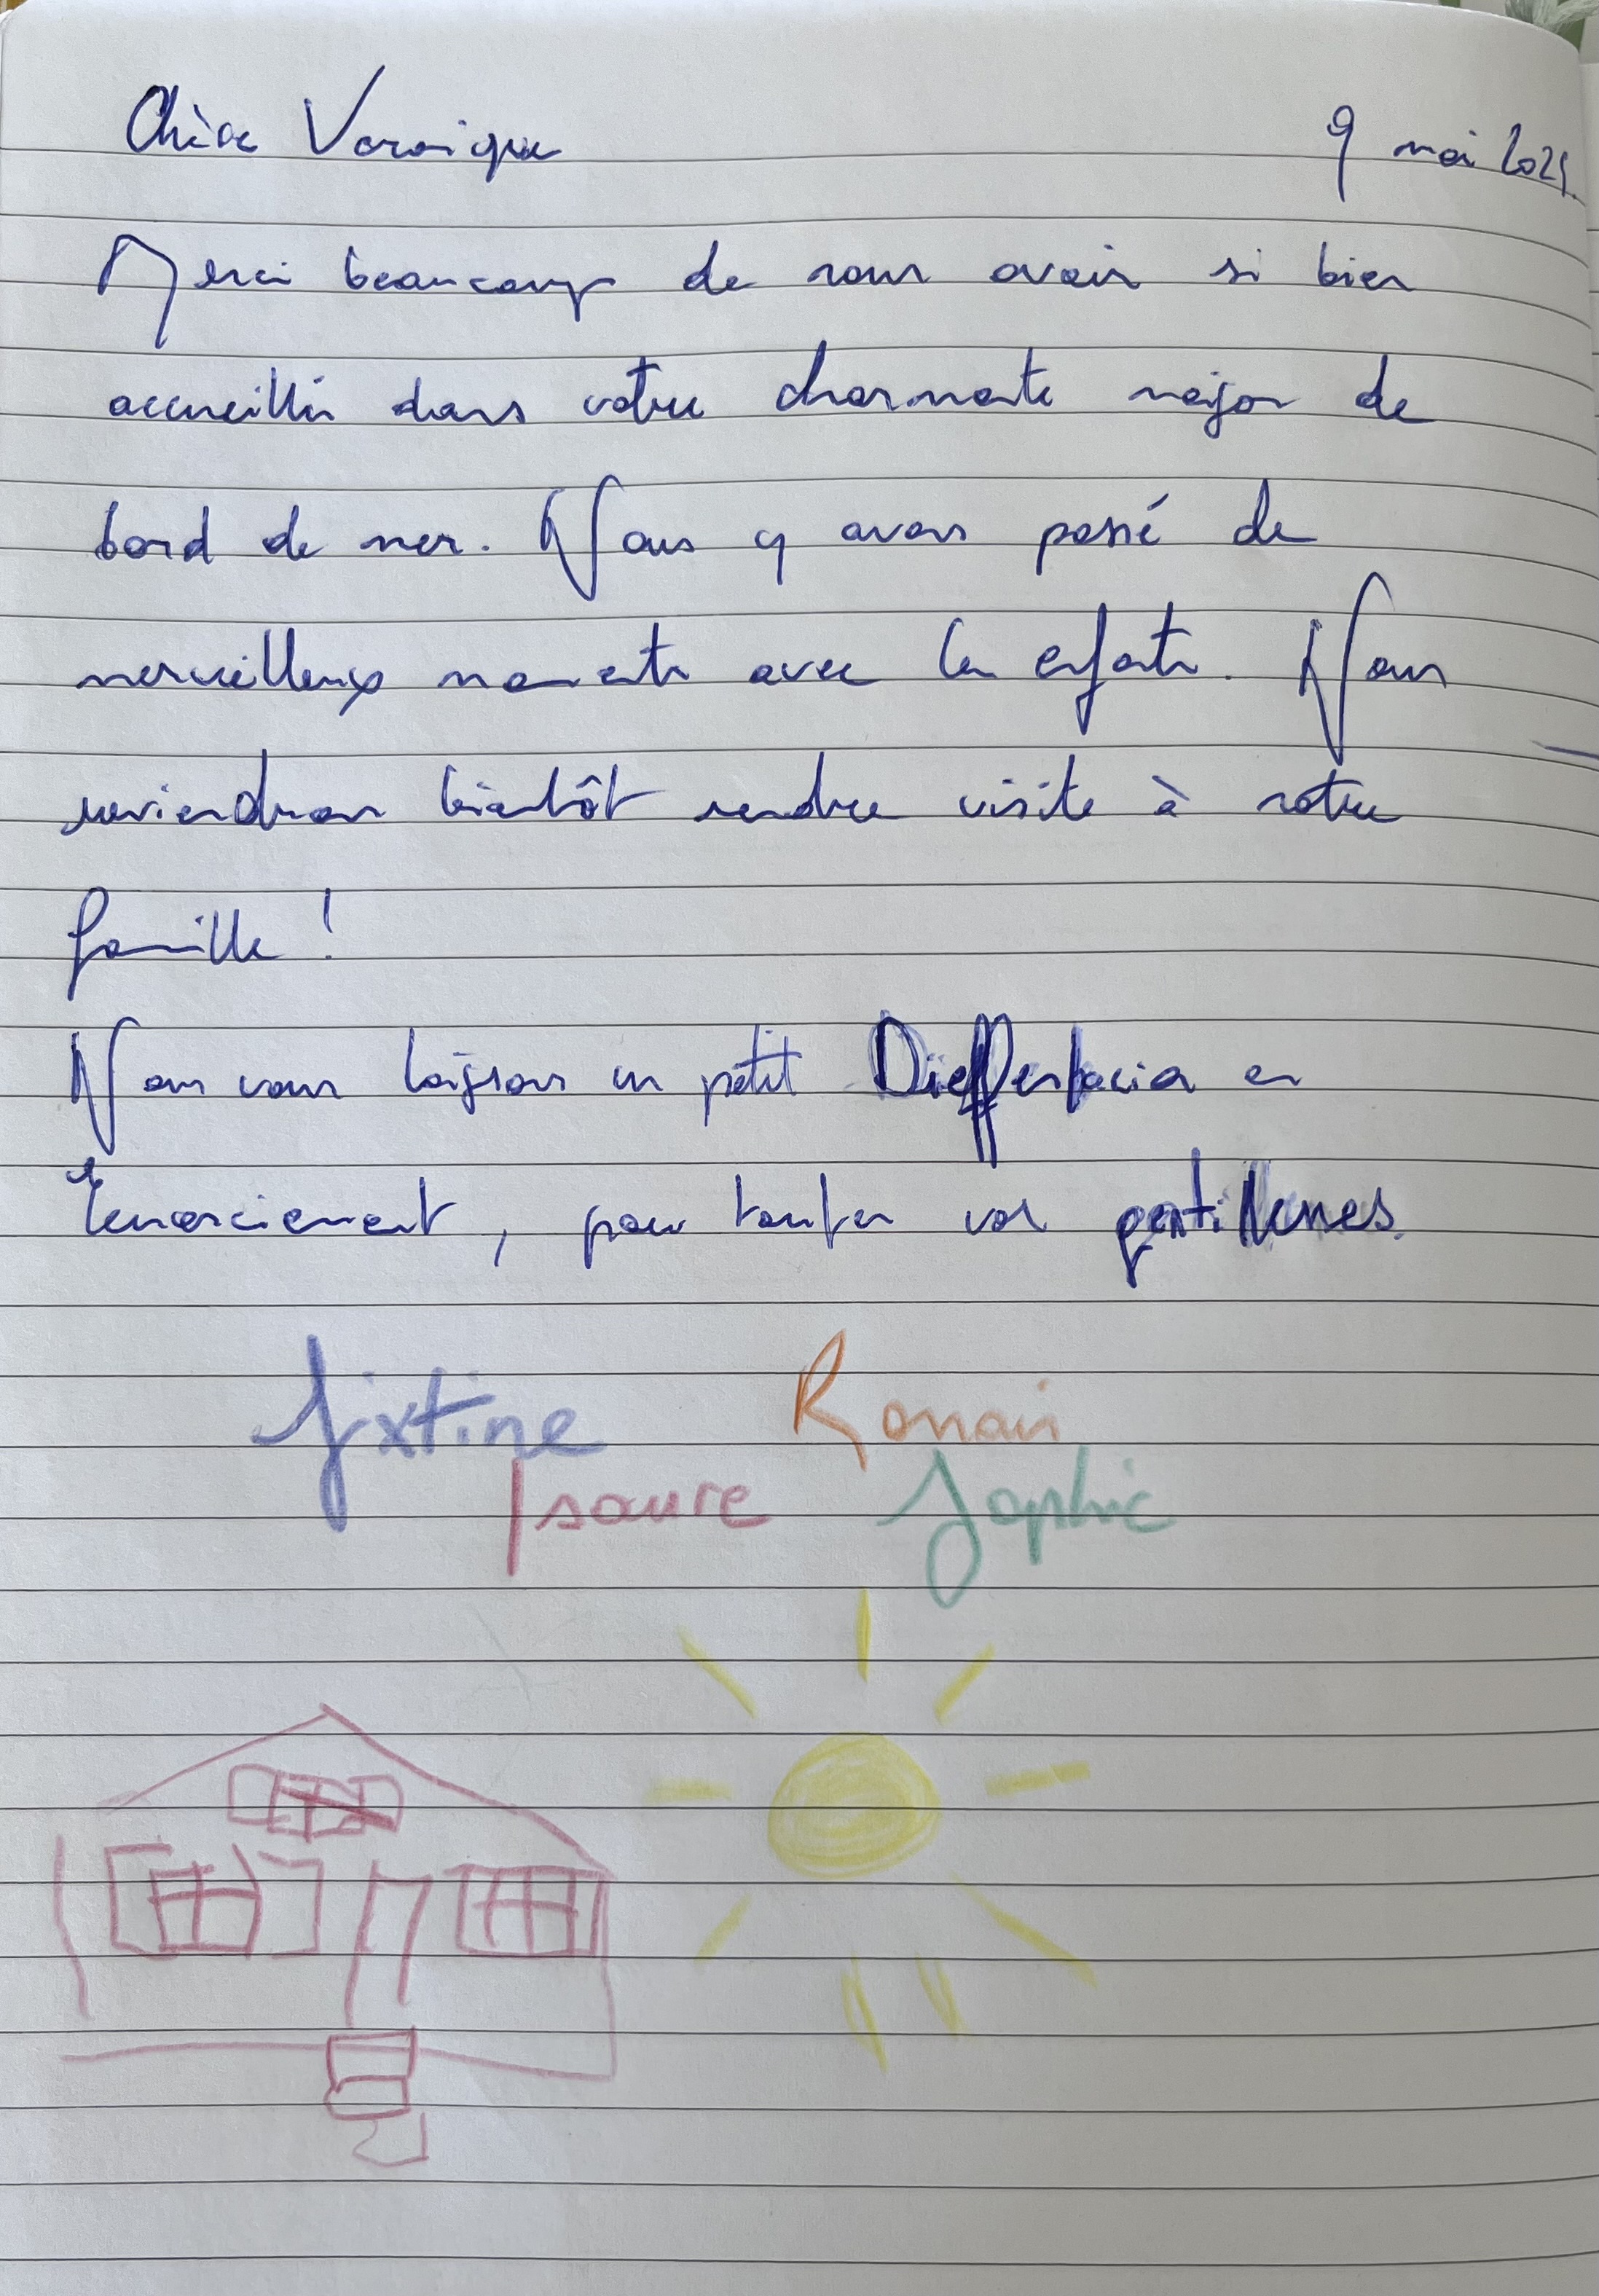 Chère Veronique
9 mai 2021.
Merci beaucoup de nous avoir si bien
accueillis dans votre charmante maison de
bord de mer. Nous y avons passé de
merveilleux moments avec les enfants. Nous
reviendrons bientôt rendre visite à notre
famille !
Nous vous laissons un petit Dieffenbacia en
remerciement, pour toutes vos gentillesses.
Sixtine Romain
Isaure Sophie